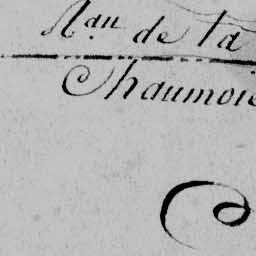 Man de la
Chaumoie